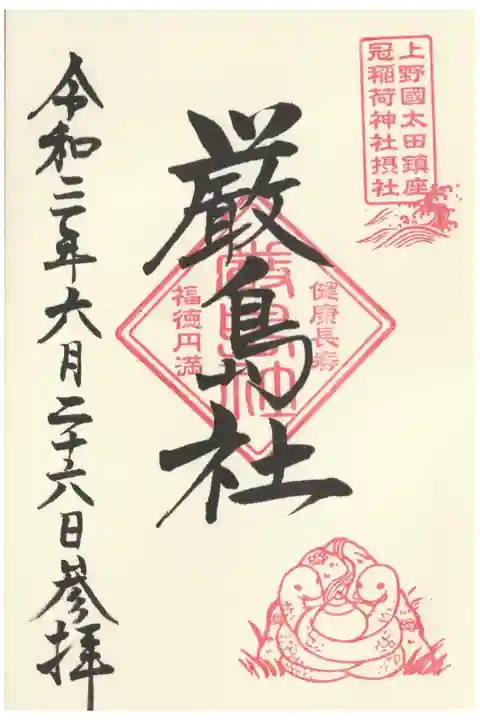 上野國太田鎮座
冠稲荷神社摂社
厳島社
健康長寿
厳島社
福徳円満
令和三年六月二十六日参拝